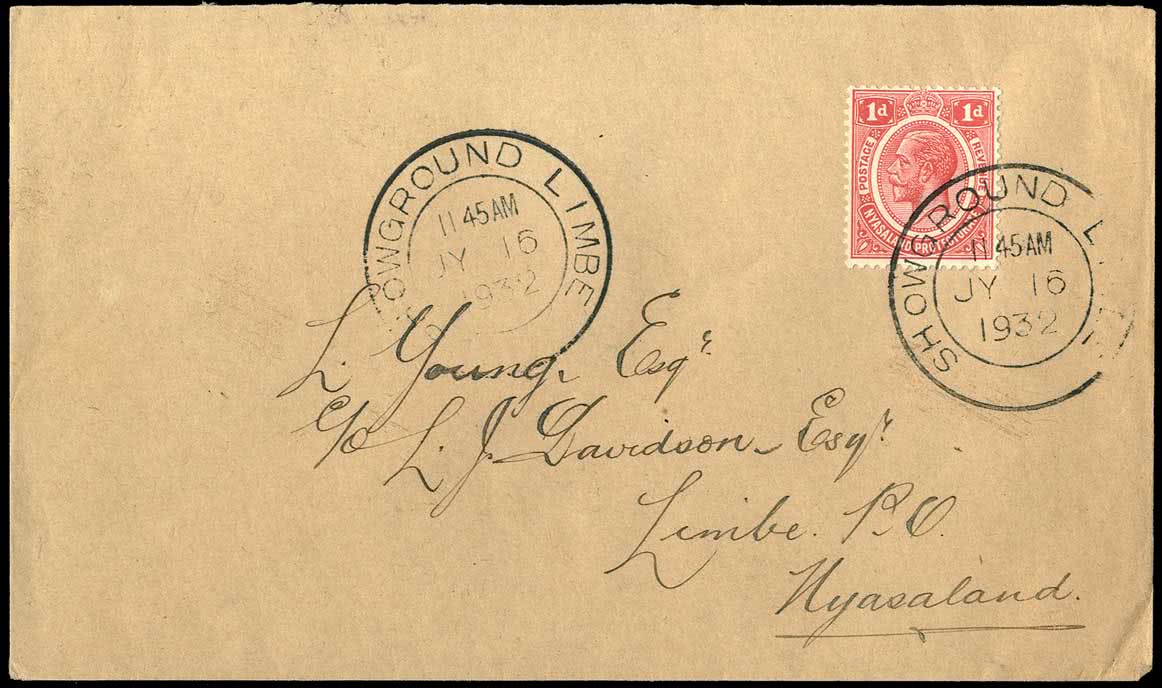 1d 1d
POSTAGE
REVENUE
NYASALAND PROTECTORATE
SHOWGROUND LIMBE
11 45 AM
JY 16
1932
SHOWGROUND LIMBE
11 45 AM
JY 16
1932
L. Young, Esqr.
c/o L. J. Davidson, Esqr.
Limbe. P.O.
Nyasaland.